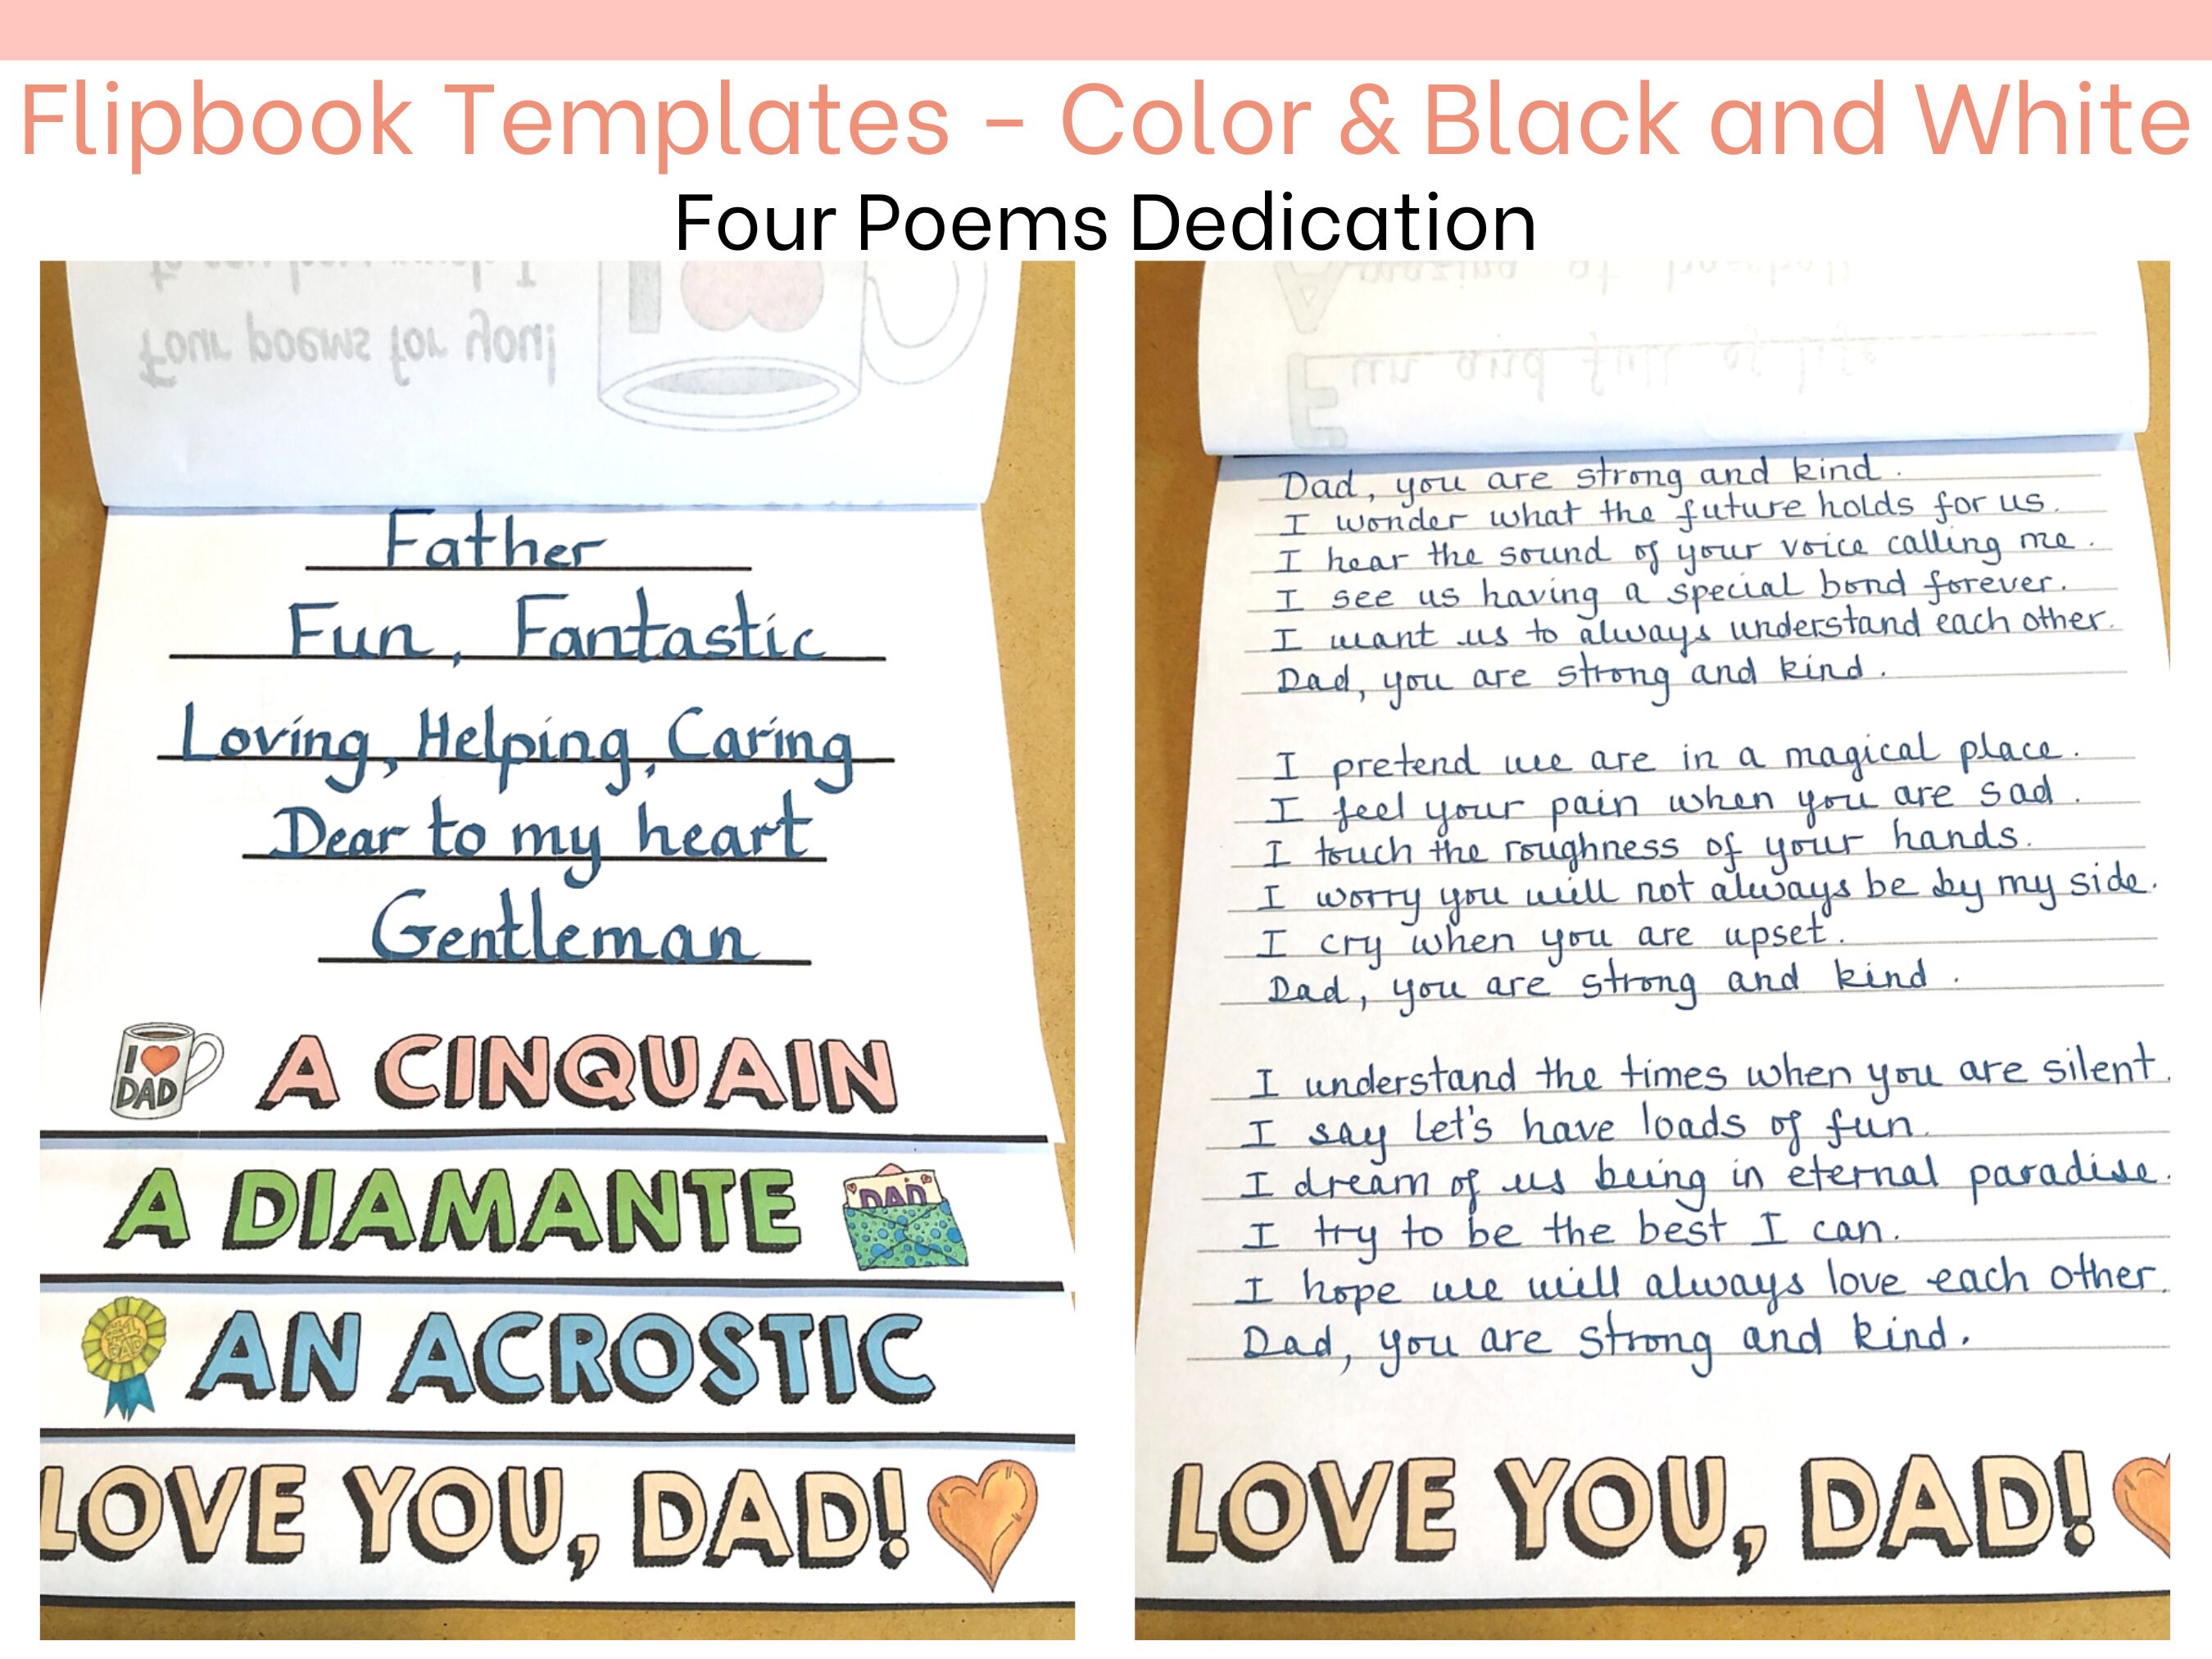 Flipbook Templates - Color & Black and White
Four Poems Dedication
Four poems for you!
Father
Fun, Fantastic
Loving, Helping, Caring
Dear to my heart
Gentleman
I ❤ DAD
A CINQUAIN
A DIAMANTE
DAD
AN ACROSTIC
LOVE YOU, DAD!
Amazing at baseball
Fun and full of life
Dad, you are strong and kind.
I wonder what the future holds for us.
I hear the sound of your voice calling me.
I see us having a special bond forever.
I want us to always understand each other.
Dad, you are strong and kind.
I pretend we are in a magical place.
I feel your pain when you are sad.
I touch the roughness of your hands.
I worry you will not always be by my side.
I cry when you are upset.
Dad, you are strong and kind.
I understand the times when you are silent.
I say let's have loads of fun.
I dream of us being in eternal paradise.
I try to be the best I can.
I hope we will always love each other.
Dad, you are strong and kind.
LOVE YOU, DAD!